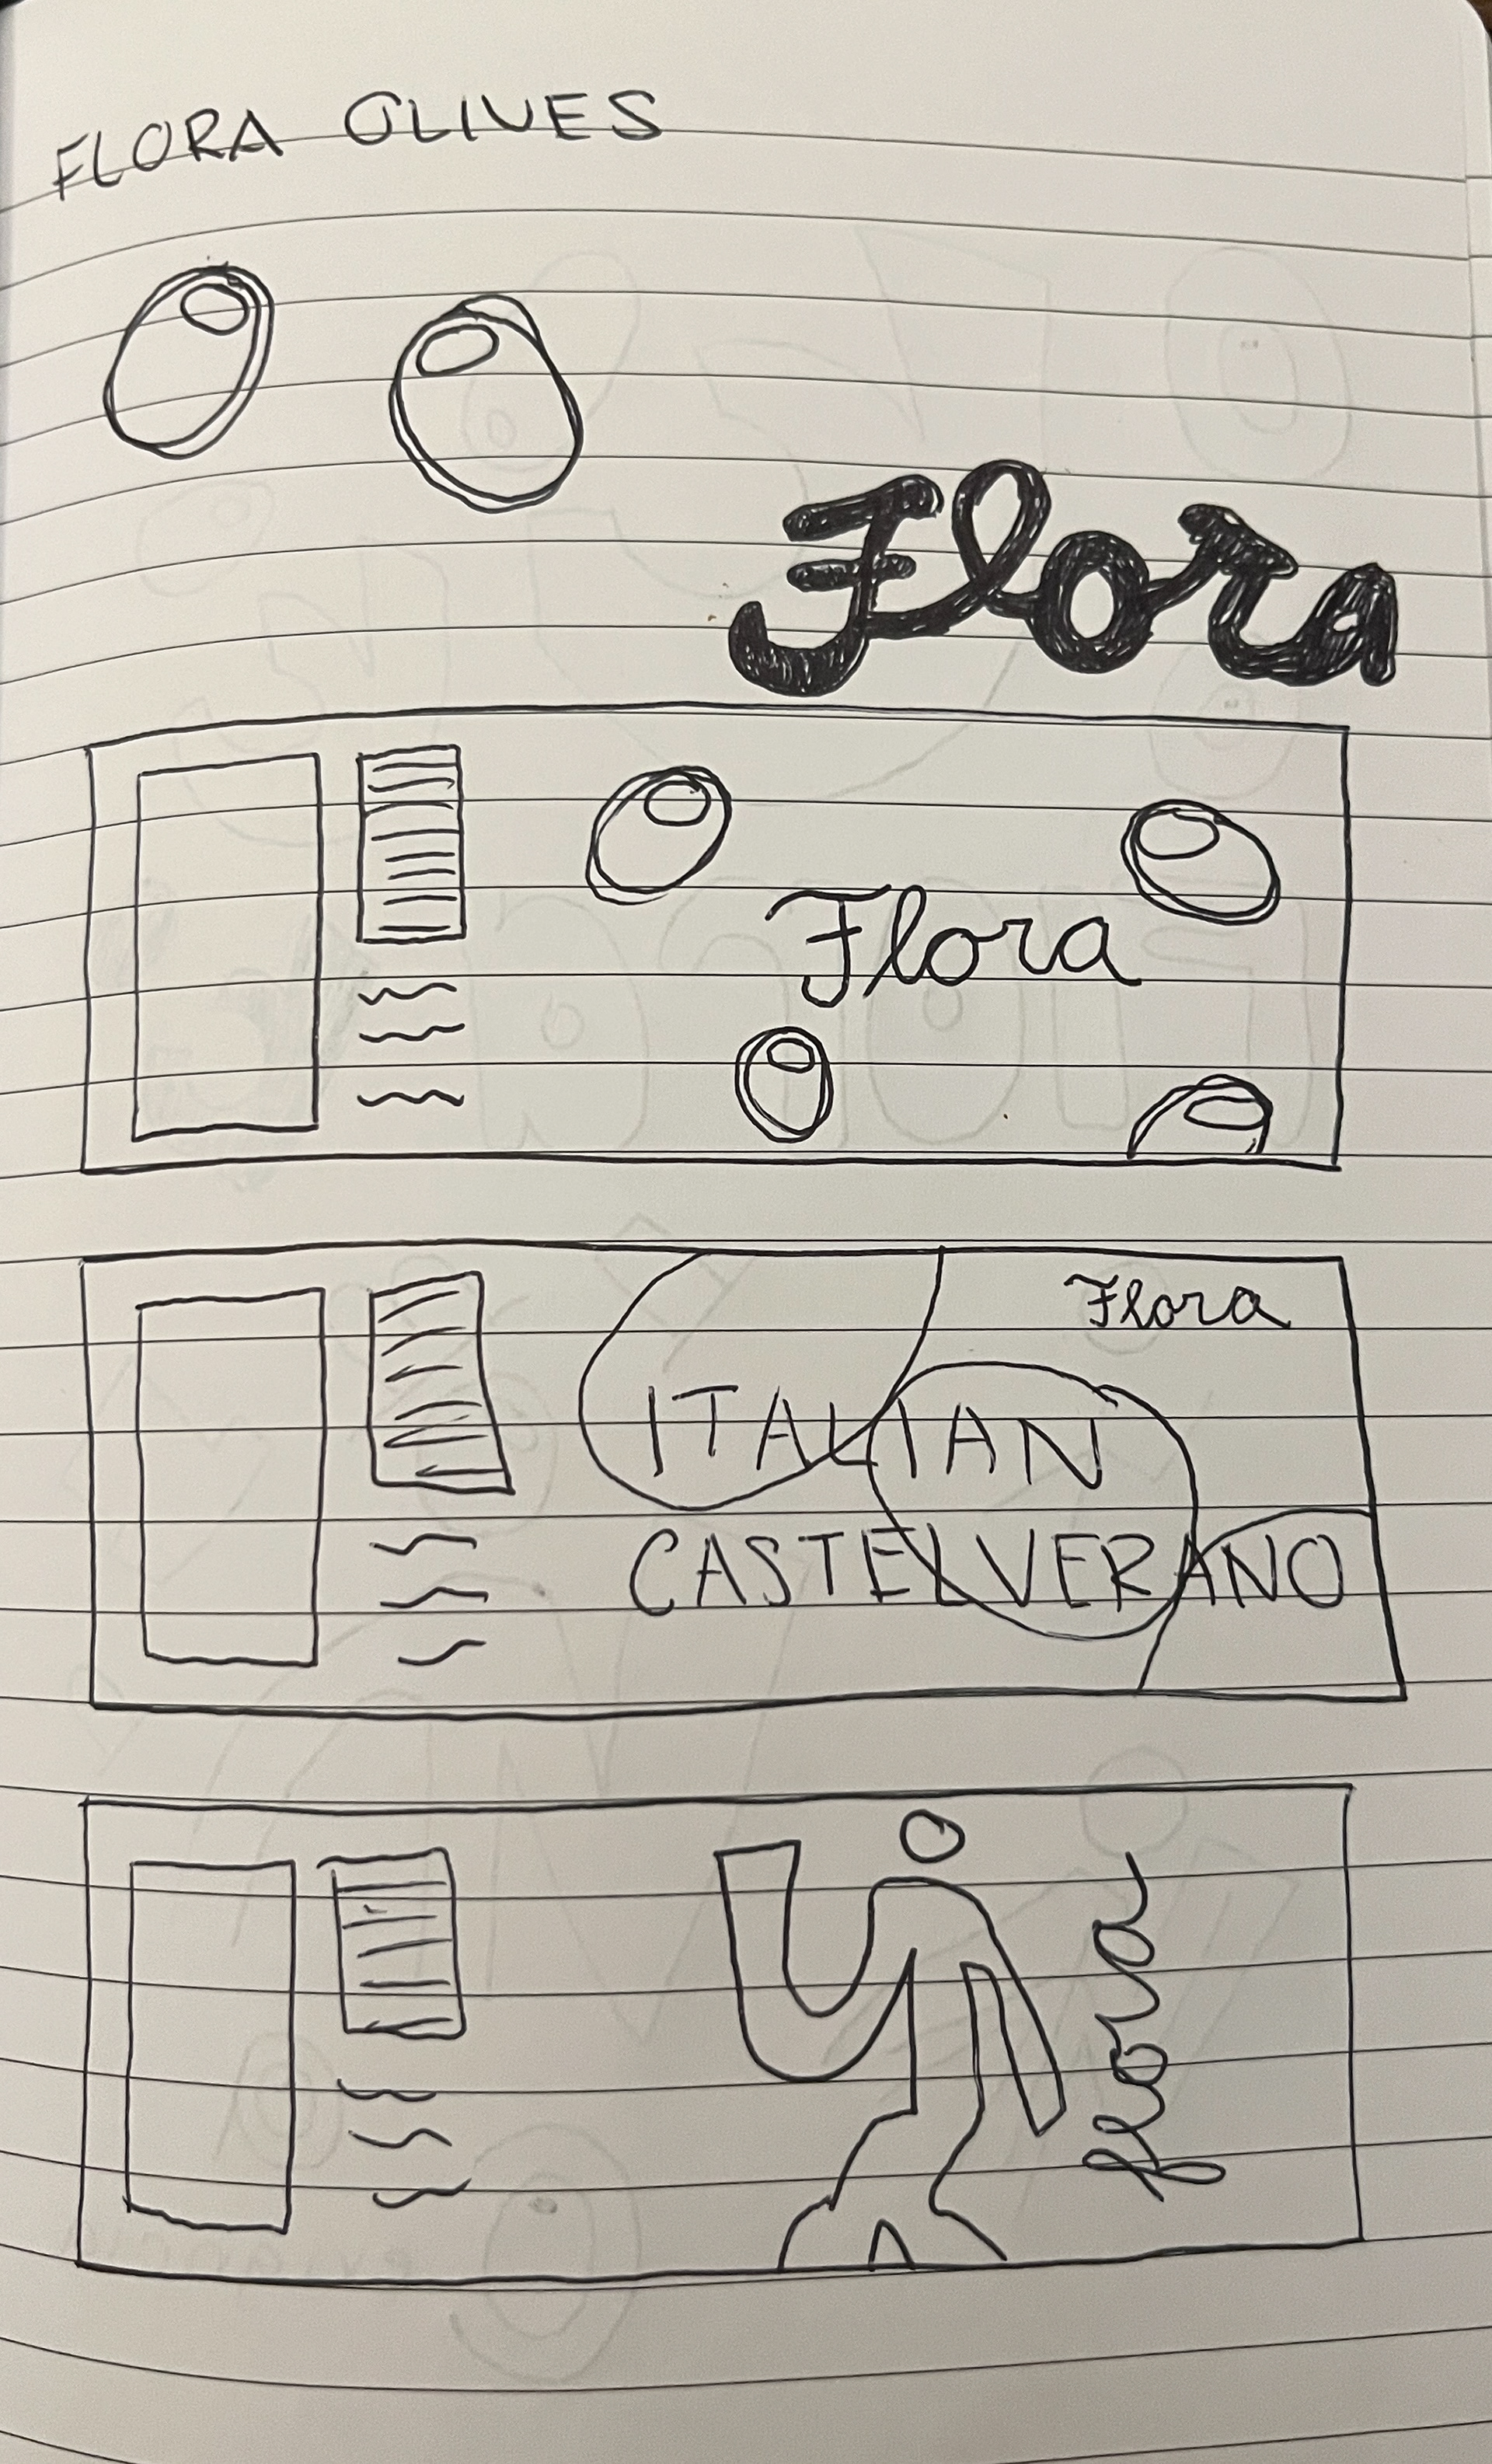 FLORA OLIVES
Flora
Flora
Flora
ITALIAN
CASTELVERANO
Flora